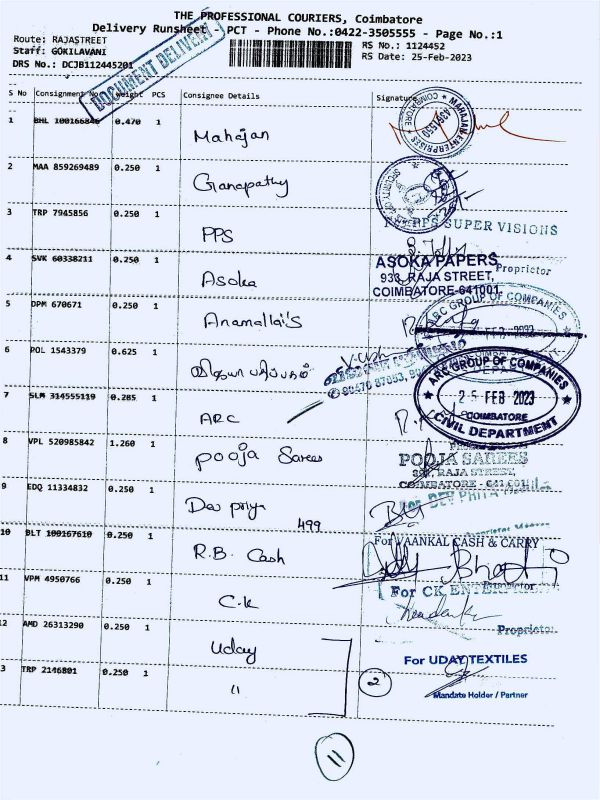 THE PROFESSIONAL COURIERS, Coimbatore
Delivery Runsheet - PCT - Phone No.:0422-3505555 - Page No.:1
Route: RAJASTREET
RS No.: 1124452
Staff: GOKILAVANI
RS Date: 25-Feb-2023
DRS No.: DCJB112445201
DOCUMENT DELIVERY
S No Consignment No Weight PCS Consignee Details Signature
1 BHL 100166846 0.470 1 Mahajan
MAHAJAN ENTERPRISES COIMBATORE
2 MAA 859269489 0.250 1 Ganapathy
SECURITY
3 TRP 7945856 0.250 1 PPS
PPS SUPER VISIONS
Proprietor
4 SVK 60338211 0.250 1 Asoka
ASOKA PAPERS,
933, RAJA STREET,
COIMBATORE-641001.
5 DPM 670671 0.250 1 Anamallai's
ARC GROUP OF COMPANIES
FEB 2023
6 POL 1543379 0.625 1
7 SLM 314555119 0.285 1 ARC
ARC GROUP OF COMPANIES
25 FEB 2023
COIMBATORE
CIVIL DEPARTMENT
8 VPL 520985842 1.260 1 pooja Sarees
POOJA SAREES
RAJA STREET,
COIMBATORE - 641 001
9 EDQ 11334832 0.250 1 Dev priya
499
For DEV PRIYA
10 BLT 100167610 0.250 1 R.B. Cash
For VAANKAL CASH & CARRY
11 VPM 4950766 0.250 1 C.K
For CK ENTERPRISES
Proprietor
12 AMD 26313290 0.250 1 Uday
For UDAY TEXTILES
Mandate Holder / Partner
3 TRP 2146801 0.250 1 "
2
11